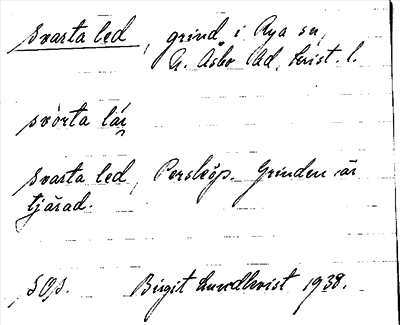 Svarta led, grind i Rya sn,
N. Åsbo hd, Krist. l.
svò̀rta lár
Svarta led, Perstorp. Grinden är
tjärad.
SOp. Birgit Lundkvist 1938.